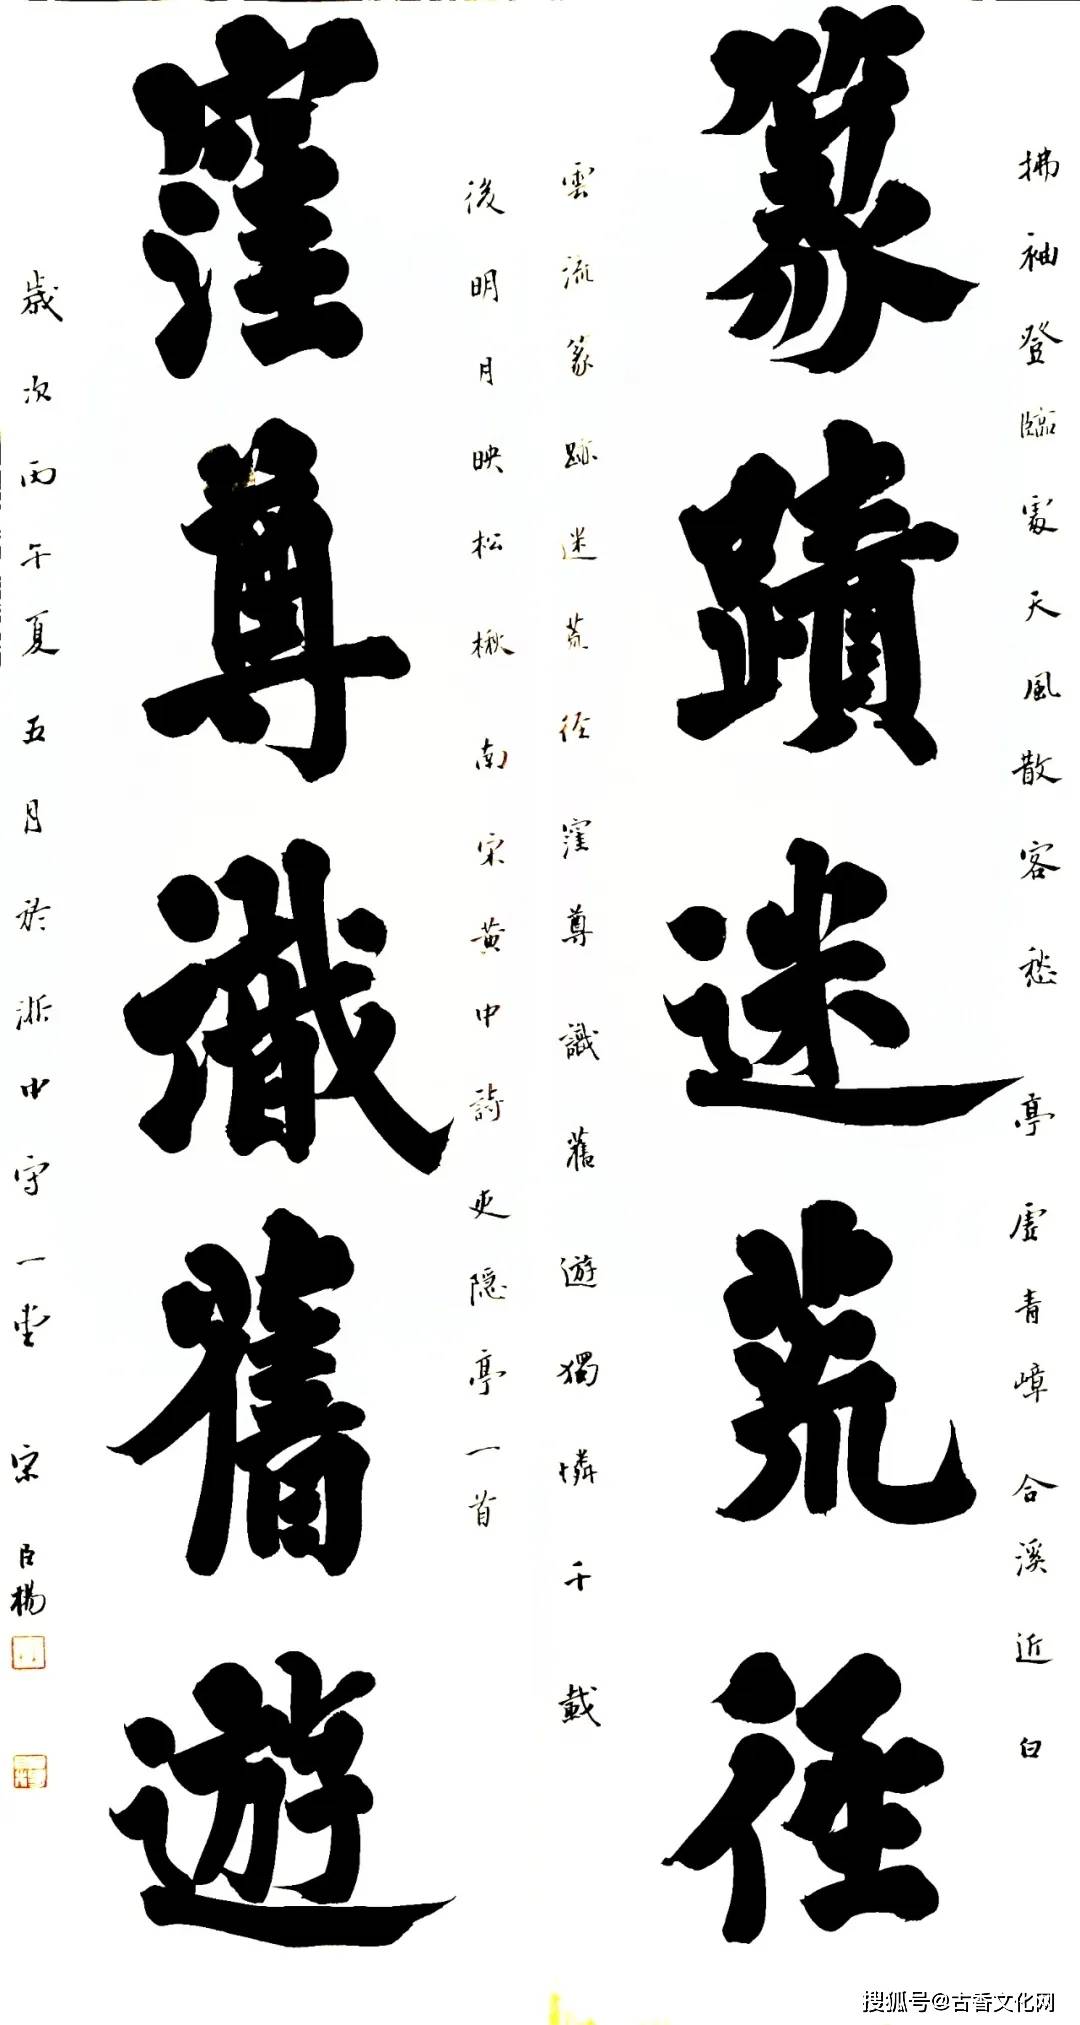 拂袖登臨處天風散客愁亭虛青嶂合溪近白
篆蹟迷荒徑
雲流篆跡迷荒徑窪尊識舊遊獨憐千載
後明月映松楸南宋黃中詩吏隱亭一首
窪尊識舊遊
歲次丙午夏五月於浙中守一堂宋臣楊
搜狐号@古香文化网